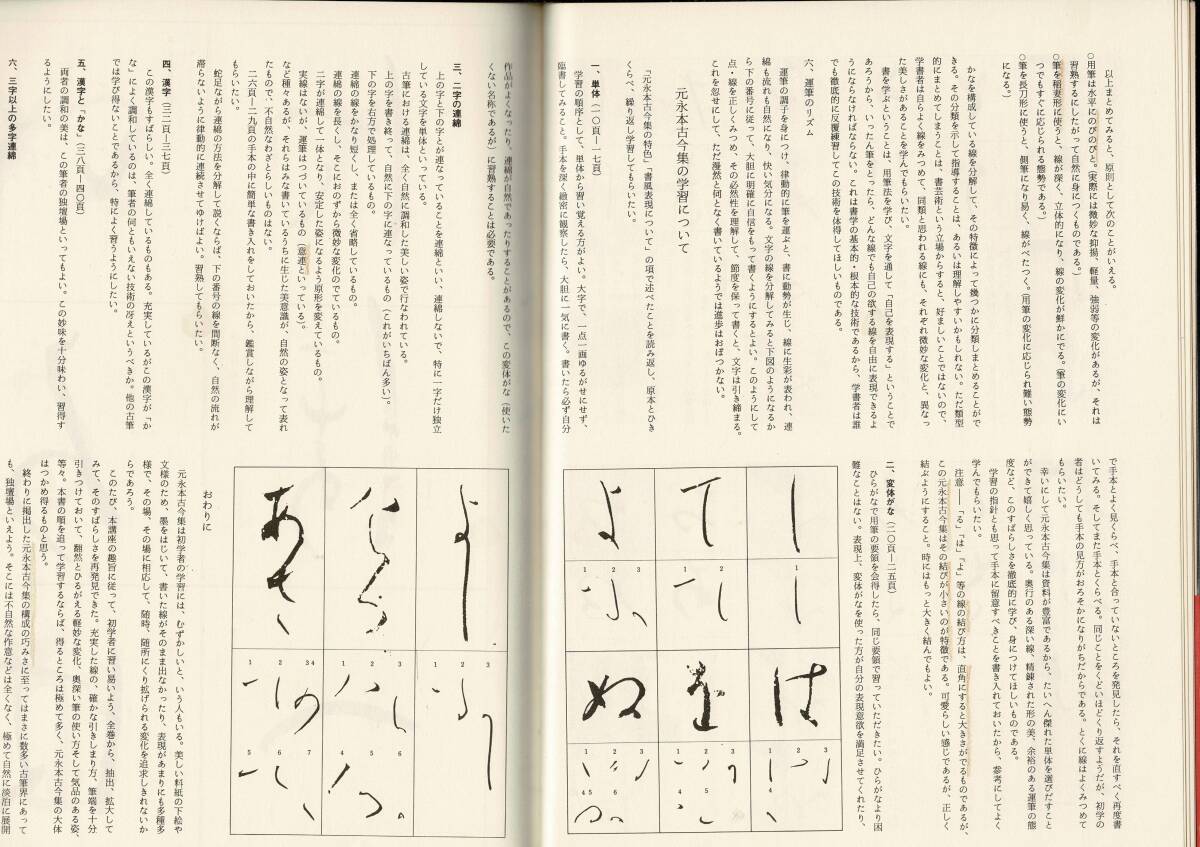 以上まとめてみると、原則として次のことがいえる。
○用筆は水平にのびのびと。（実際には微妙な抑揚、軽量、強弱等の変化があるが、それは
習熟するにしたがって自然に身につくものである。）
○筆を稲妻形に使うと、線が深く、立体的になり、線の変化が鮮かにでる。（筆の変化にい
つでもすぐに応じられる態勢である。）
○筆を長刀形に使うと、側筆になり易く、線がべたつく。（用筆の変化に応じられ難い態勢
になる。）
かなを構成している線を分解して、その特徴によって幾つかに分類しまとめることがで
きる。その分類を示して指導することは、あるいは理解しやすいかもしれない。ただ類型
的にまとめてしまうことは、書芸術という立場からすると、好ましいことではないので、
学書者は自らよく線をみつめ、同類と思われる線にも、それぞれ微妙な変化と、異なっ
た美しさがあることを学んでもらいたい。
書を学ぶということは、用筆法を学び、文字を通して「自己を表現する」ということで
あろうから、いったん筆をとったら、どんな線でも自己の欲する線を自由に表現できるよ
うにならなければならない。これは書学の基本的・根本的な技術であるから、学書者は誰
でも徹底的に反覆練習してこの技術を体得してほしいものである。
六、運筆のリズム
運筆の調子を身につけ、律動的に筆を運ぶと、書に動勢が生じ、線に生彩が表われ、連
綿も流れも自然になり、快い気分になる。文字の線を分解してみると下図のようになるか
ら下の番号に従って、大胆に明確に自信をもって書くようにするとよい。このようにして
点・線を正しくみつめ、その必然性を理解して、節度を保って書くと、文字は引き締まる。
これを忽せにして、ただ漫然と何となく書いているようでは進歩はおぼつかない。
元永本古今集の学習について
「元永本古今集の特色」「書風表現について」の項で述べたことを読み返し、原本とひき
くらべ、繰り返し学習してもらいたい。
一、単体（一〇頁―一七頁）
学習の順序として、単体から習い覚える方がよい。大字で、一点一画ゆるがせにせず、
臨書してみること。手本を深く緻密に観察したら、大胆に一気に書く。書いたら必ず自分
で手本とよく見くらべ、手本と合っていないところを発見したら、それを直すべく再度書
いてみる。そしてまた手本とくらべる。同じことをくどいほどくり返すようだが、初学の
者はどうしても手本の見方がおろそかになりがちだからである。とくに線はよくみつめて
もらいたい。
幸いにして元永本古今集は資料が豊富であるから、たいへん傑れた単体を選びだすこと
ができて嬉しく思っている。奥行のある深い線、精錬された形の美、余裕のある運筆の態
度など、このすばらしさを徹底的に学び、身につけてほしいものである。
学習の指針とも思って手本に留意すべきことを書き入れておいたから、参考にしてよく
学んでもらいたい。
注意――「る」「は」「よ」等の線の結び方は、直角にすると大きさがでるものであるが、
この元永本古今集はその結びが小さいのが特徴である。可愛らしい感じであるが、正しく
結ぶようにすること。時にはもっと大きく結んでもよい。
二、変体がな（二〇頁―二五頁）
ひらがなで用筆の要領を会得したら、同じ要領で習っていただきたい。ひらがなより困
難なことはない。表現上、変体がなを使った方が自分の表現意欲を満足させてくれたり、
し
て
よ
1
1 2
1 2 3
は
を
ぬ
1 2 3
1 2 3
4 5
1 2 3
4 5 6
作品がよくなったり、連綿が自然であったりすることがあるので、この変体がな（使いた
くない名称であるが）に習熟することは必要である。
三、二字の連綿
上の字と下の字とが連なっていることを連綿といい、連綿しないで、特に一字だけ独立
している文字を単体といっている。
古筆における連綿は、全く自然に調和した美しい姿で行なわれている。
上の字を書き終って、自然に下の字に連なっているもの（これがいちばん多い）。
下の字を右方で処理しているもの。
連綿の線をかなり短くし、または全く省略しているもの。
連綿の線を軽くし、そこにおのずから微妙な変化のでているもの。
二字が連綿して一体となり、安定した姿になるよう原形を変えているもの。
実線はないが、運筆はつづいているもの（意連といっている）。
など種々あるが、それらはみな書いているうちに生じた美意識が、自然の姿となって表れ
たもので、不自然なわざとらしいものはない。
二六頁―二九頁の手本の中に簡単な書き入れをしておいたから、鑑賞しながら理解して
もらいたい。
蛇足ながら連綿の方法を分解して説くならば、下の番号の線を間断なく、自然の流れが
滞らないように律動的に連続させてゆけばよい。習熟してもらいたい。
四、漢字（三二頁―三七頁）
この漢字もすばらしい。全く連綿しているものもある。充実しているがこの漢字が「か
な」によく調和しているのは、筆者の何ともいえない技術の冴えというべきか。他の古筆
では学び得ないことであるから、特によく習うようにしたい。
五、漢字と「かな」（三八頁―四〇頁）
両者の調和の美は、この筆者の独壇場といってもよい。この妙味を十分味わい、習得す
るようにしたい。
六、三字以上の多字連綿
1 2 3
1 2 3
4 5 6
1 2 3 4
5 6 7
おわりに
元永本古今集は初学者の学習には、むずかしいと、いう人もいる。美しい料紙の下絵や
文様のため、墨をはじいて、書いた線がそのまま出なかったり、表現があまりにも多種多
様で、その場、その場に相応して、随時、随所にくり拡げられる変化を追求しきれないか
らであろう。
このたび、本講座の趣旨に従って、初学者に習い易いよう、全巻から、抽出、拡大して
みて、そのすばらしさを再発見できた。充実した線の、確かな引きしまり方、筆端を十分
引きつけておいて、翻然とひるがえる軽妙な変化、奥深い筆の使い方そして気品のある姿、
等々。本書の順を追って学習するならば、得るところは極めて多く、元永本古今集の大体
はつかめ得るものと思う。
終わりに掲出した元永本古今集の構成の巧みさに至ってはまさに数多い古筆界にあって
も、独壇場といえよう。そこには不自然な作意などは全くなく、極めて自然に淡泊に展開